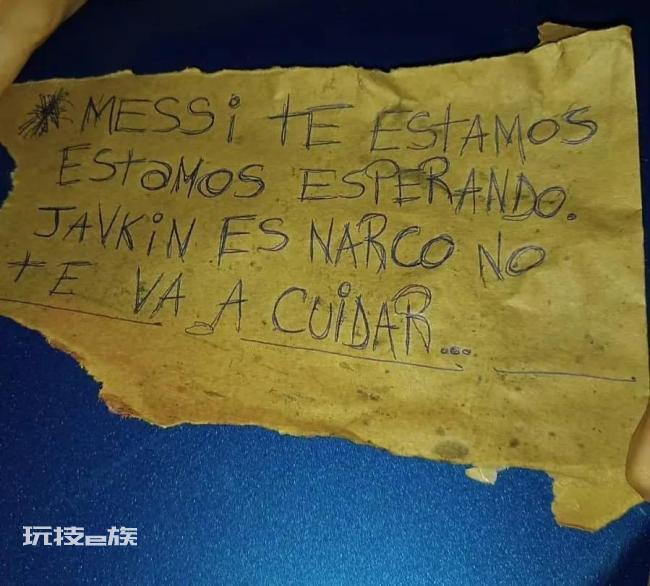 MESSi tE EStAMOS
EStaMOS ESPERANDO.
JAVKiN ES NARCO NO
tE VA A CUiDAR...
玩技e族